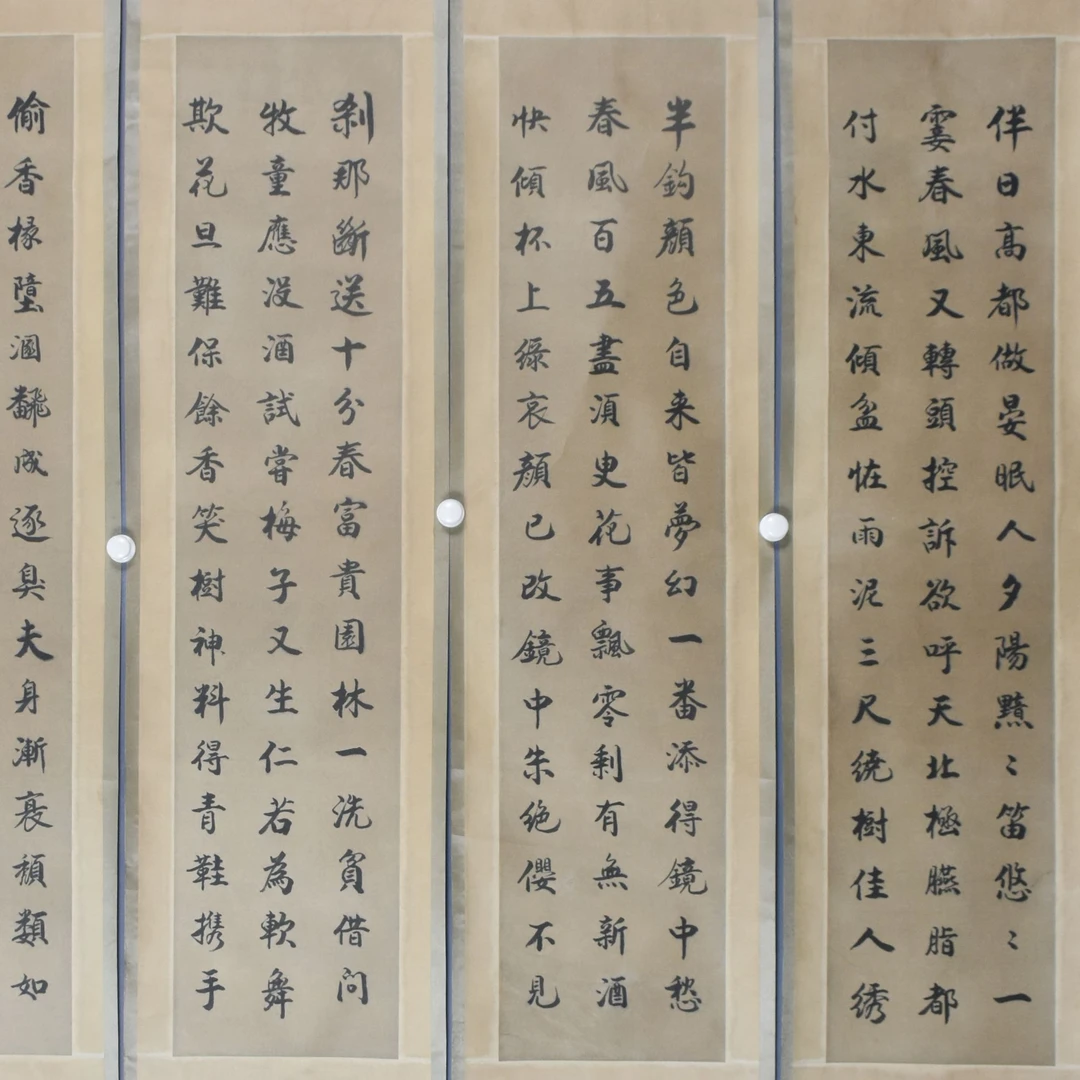 伴日高都做晏眠人夕陽黯〻笛悠〻一
霎春風又轉頭控訴欲呼天北極臙脂都
付水東流傾盆怪雨泥三尺繞樹佳人綉
半鈎顏色自来皆夢幻一番添得鏡中愁
春風百五盡須臾花事飄零剩有無新酒
快傾杯上綠衰顏已改鏡中朱絶纓不見
刹那斷送十分春富貴園林一洗貧借問
牧童應没酒試嘗梅子又生仁若為軟舞
欺花旦難保餘香笑樹神料得青鞋携手
偷香椽墮溷飜成逐臭夫身漸衰頹類如